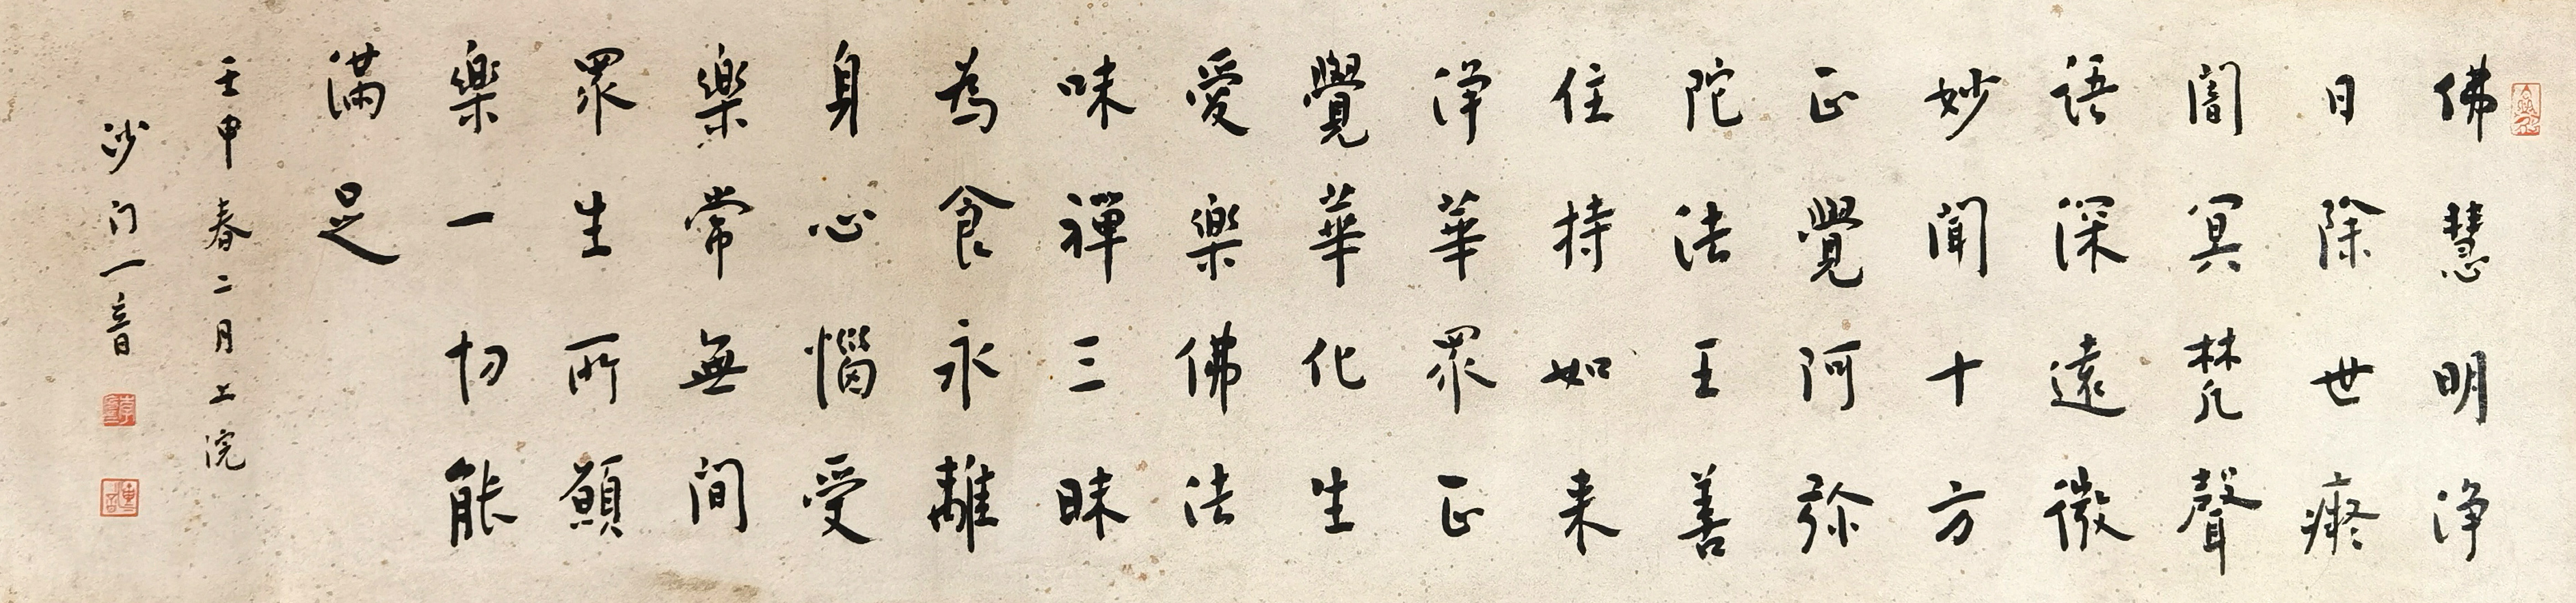 佛慧明淨
日除世癡
闇冥梵聲
語深遠微
妙聞十方
正覺阿弥
陀法王善
住持如来
淨華眾正
覺華化生
愛樂佛法
味禪三昧
為食永離
身心惱受
樂常無間
眾生所願
樂一切能
滿足
壬申春二月上浣
沙门一音